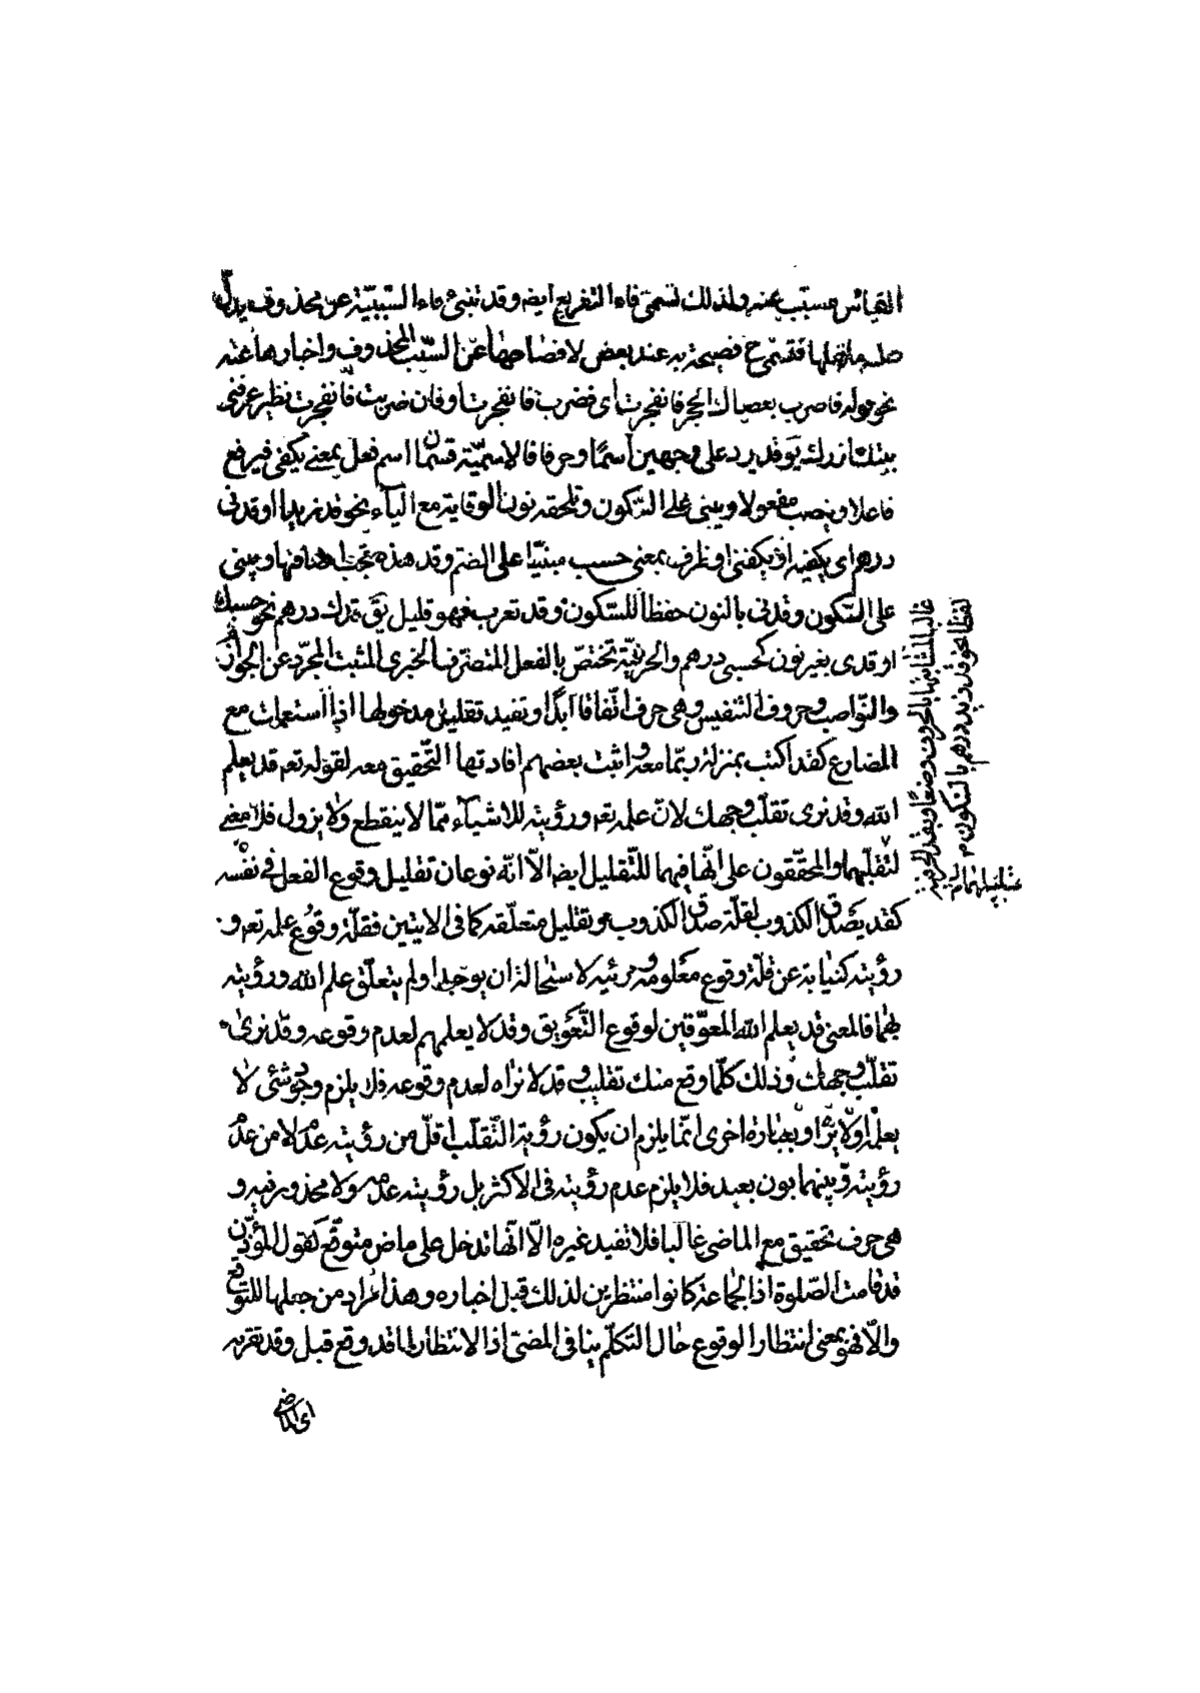 القياس مسبب عنه ولذلك تسمى فاء التفريع ايضه وقد تنبئ فاء السببيّة عن محذوف يدلّ
عليه ما قبلها فتسمى ح فصيحة به عند بعض لافصاحها عن السّبب المحذوف واخبارها عنه
نحو قوله فاضرب بعصاك الحجر فانفجرت اى فضرب فانفجرت او فان ضربت فانفجرت نظير عرفنى
بيتك ازرك يو قد يرد على وجهين اسمًا وحرفا فالاسميّة قسمان اسم فعل بمعنى يكفى فيرفع
فاعلا وينصب مفعولا ويبنى على السّكون وتلحقه نون الوقاية مع الياء نحو قد زيدا او قدنى
درهم اى يكفيه او يكفنى او ظرف بمعنى حسب مبنيّا على الضم وقد هذه تجب اضافتها ويبنى
على السّكون وقدنى بالنون حفظا للسّكون وقد تعرب فهو قليل يق قدك درهم نحو حسبك
او قدى بغير نون كحسبى درهم والحرفيّة تختصّ بالفعل المتصرّف الخبرى المثبت المجرّد عن الجوازم
والنّواصب وحروف التنفيس وهى حرف اتّفاقا ابدًا وتفيد تقليل مدخولها اذا استعملت مع
المضارع كقد اكتب بمنزلة ربّما معه واثبت بعضهم افادتها التّحقيق معه لقوله تعه قد يعلم
الله وقد نرى تقلّب وجهك لانّ علمه تعه ورؤيته للاشياء ممّا لا ينقطع ولا يزول فلا معنى
لتقليلهما والمحقّقون على انّها فيهما للتّقليل ايضه الّا انّه نوعان تقليل وقوع الفعل فى نفسه
كقد يصدق الكذوب لقلّة صدق الكذوب وتقليل متعلّقه كما فى الايتين فقلّة وقوع علمه تعه و
رؤيته كناية عن قلّة وقوع معلومه ومرئيه لاستحالة ان يوجدا ولم يتعلّق علم الله ورؤيته
بهما فالمعنى قد يعلم الله المعوّقين لوقوع التّعويق وقد لا يعلمهم لعدم وقوعه وقد نرى
تقلّب وجهك وذلك كلّما وقع منك تقليب وقد لا نراه لعدم وقوعه فلا يلزم وجود شئ لا
يعلمه اولا يراه وبعبارة اخرى انّما يلزم ان يكون رؤية التّقلّب اقلّ من رؤيته عدمه لا من عدم
رؤيته وبينهما بون بعيد فلا يلزم عدم رؤيته فى الاكثر بل رؤيته عدمه ولا محذور فيه و
هى حرف تحقيق مع الماضى غالبا فلا تفيد غيره الّا انّها تدخل على ماض متوقّع كقول المؤذّن
قد قامت الصّلوة اذ الجماعة كانوا منتظرين لذلك قبل اخباره وهذا مراد من جعلها للتوقّع
والّا فهو بمعنى انتظار الوقوع حال التكلّم ينافى المضىّ اذ الانتظار لما قد وقع قبل وقد تقربه
اى الماضى
غالبا لمشابهتها بالحرف وضعًا وبقد الحرفيّة
لفظا نحو قد زيد درهم بالسّكون